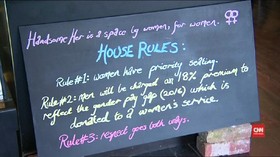 Handsome Her is a space by women, for women.
HOUSE RULES:
Rule #1: women have priority seating.
Rule #2: men will be charged an 18% premium to
reflect the gender pay gap (2016) which is
donated to a women's service.
Rule #3: respect goes both ways.
CNN